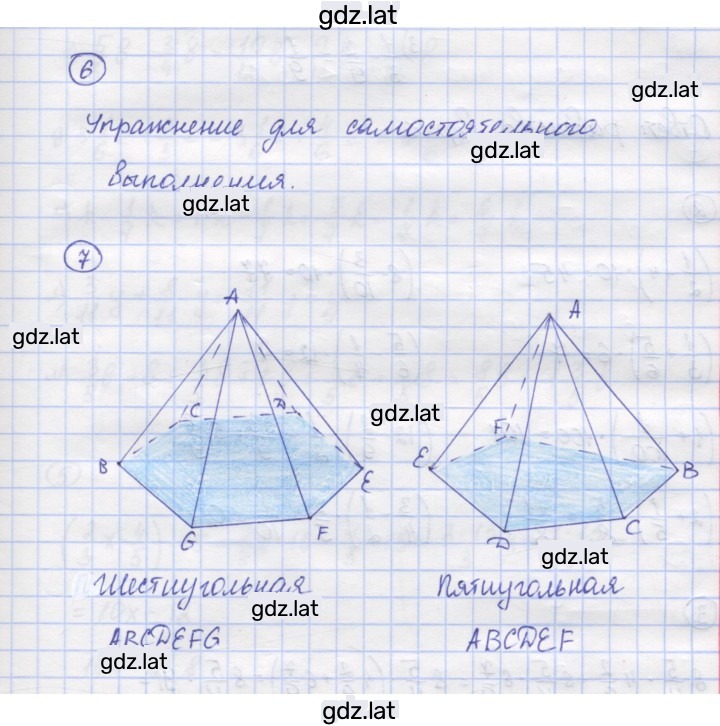 gdz.lat
6
gdz.lat
Упражнение для самостоятельного
gdz.lat
выполнения.
gdz.lat
7
A
A
gdz.lat
C
D
gdz.lat
F
B
E
E
B
G
F
D
C
gdz.lat
Шестиугольная
Пятиугольная
gdz.lat
ABCDEFG
ABCDEF
gdz.lat
gdz.lat